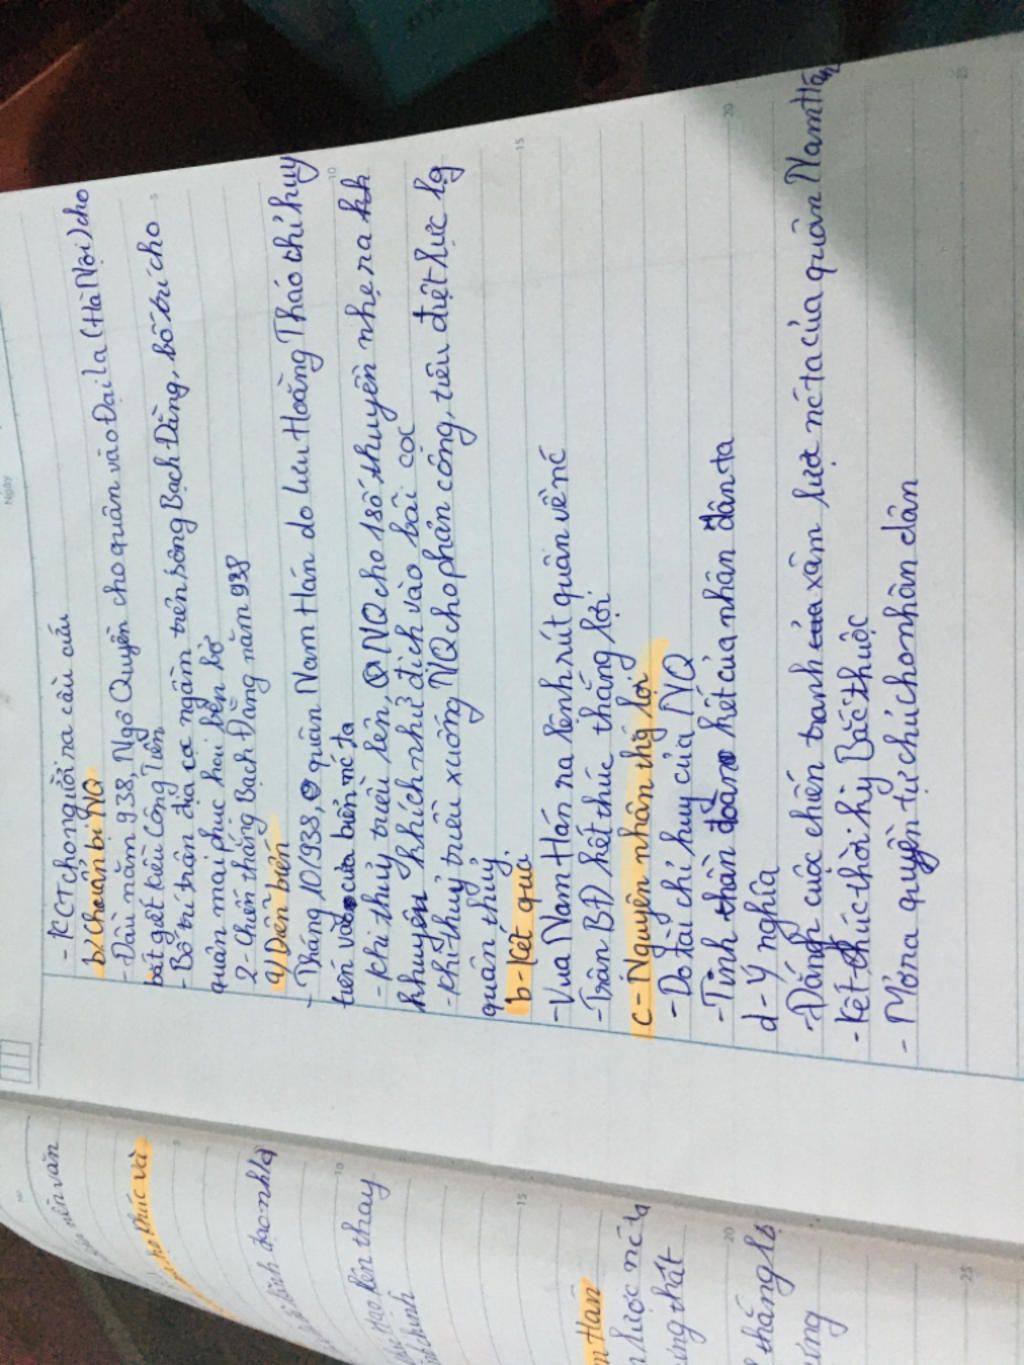 - KCT cho người ra cầu cứu
b/ Chuẩn bị NQ
- Đầu năm 938, Ngô Quyền cho quân vào Đại la (Hà Nội) cho
bắt giết kiều Công Tiễn
- Bố trí trân địa cọc ngầm trên sông Bạch Đằng, bố trí cho
quân mai phục hai bên bờ
2- Chiến thắng Bạch Đằng năm 938
a) Diễn biến
- Tháng 10/938, quân Nam Hán do Lưu Hoằng Tháo chỉ huy
tiến vào cửa biển nc ta
- khi thuỷ triều lên, NQ cho 1 số thuyền nhẹ ra kh
khuyên khích nhử địch vào bãi cọc
- khi thuỷ triều xuống NQ cho phản công, tiêu diệt lực lg
quân thuỷ
b- Kết quả.
- Vua Nam Hán ra lệnh rút quân về nc
- Trân BĐ kết thúc thắng lợi
c- Nguyên nhân thg lợi
- Do tài chỉ huy của NQ
- Tinh thần đoàn kết của nhân dân ta
d- Ý nghĩa
- Đánh cuộc chiến tranh của xâm lược nc ta của quân Nam Hán
- kết thúc thời kỳ Bắc thuộc
- Mở ra quyền tự chủ cho nhân dân
nên văn
họ khúc và
hành
lên thay
chính
Hán
lược nc ta
thắng lợi